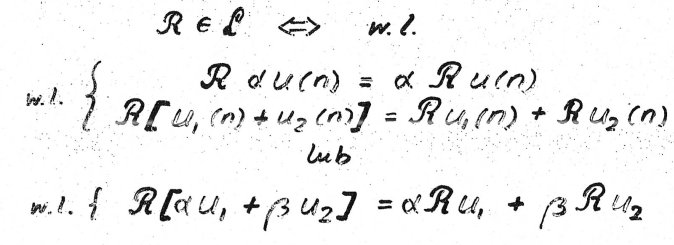 ℛ ∈ ℒ ⇔ w.l.
w.l. { ℛ αu(n) = α ℛ u(n)
ℛ[u₁(n) + u₂(n)] = ℛu₁(n) + ℛu₂(n)
lub
w.l. { ℛ[αu₁ + βu₂] = αℛu₁ + βℛu₂